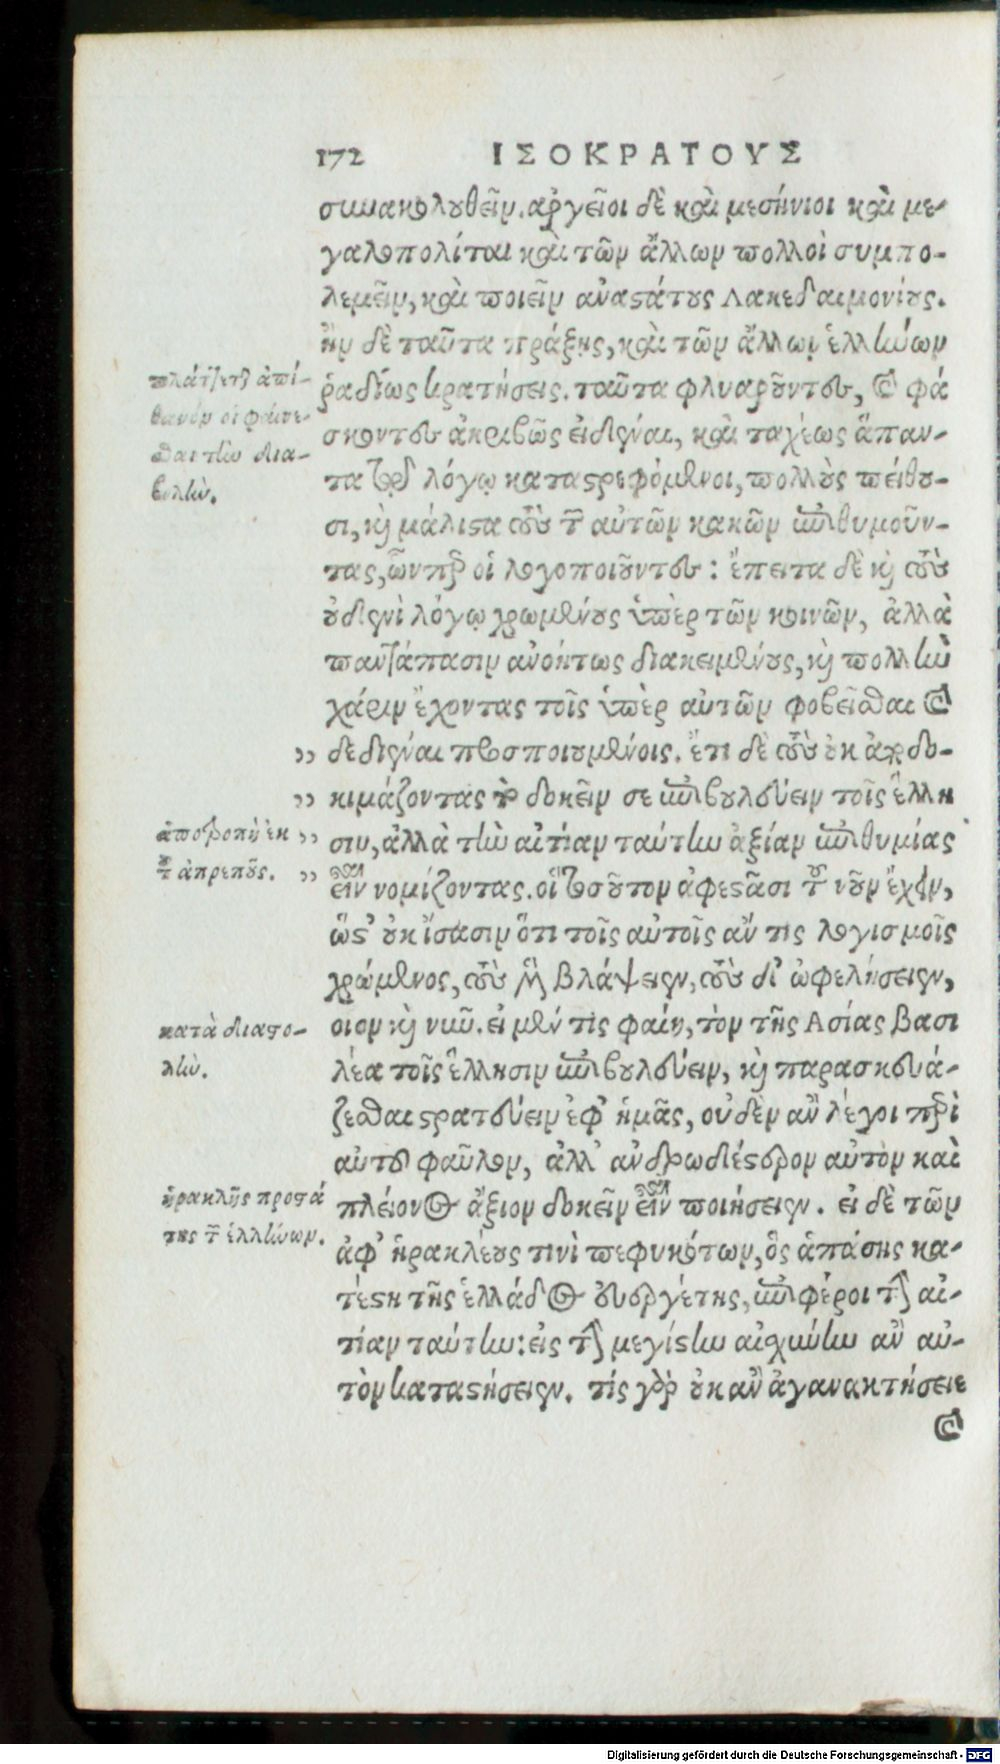 172 ΙΣΟΚΡΑΤΟΥΣ
συνακολουθεῖν. ἀργεῖοι δὲ καὶ μεσήνιοι καὶ με-
γαλοπολίται καὶ τῶν ἄλλων πολλοὶ συμπο-
λεμεῖν, καὶ ποιεῖν ἀναστάτους Λακεδαιμονίους.
ἢν δὲ ταῦτα πράξῃς, καὶ τῶν ἄλλων ἑλλήνων
ῥαδίως κρατήσεις. ταῦτα φλυαροῦντες, καὶ φά
σκοντες ἀκριβῶς εἰδέναι, καὶ ταχέως ἅπαν-
τα τῷ λόγῳ καταστρεφόμενοι, πολλοὺς πείθου-
σι, καὶ μάλιστα τοὺς τῶν αὐτῶν κακῶν ἐπιθυμοῦν-
τας, ὧνπερ οἱ λογοποιοῦντες: ἔπειτα δὲ καὶ τοὺς
οὐδενὶ λόγῳ χρωμένους ὑπὲρ τῶν κοινῶν, ἀλλὰ
παντάπασιν ἀνοήτως διακειμένους, καὶ πολλὴν
χάριν ἔχοντας τοῖς ὑπὲρ αὐτῶν φοβεῖσθαι καὶ
,, δεδιέναι προσποιουμένοις. ἔτι δὲ τοὺς οὐκ ἀποδο-
,, κιμάζοντας τὸ δοκεῖν σε ἐπιβουλεύειν τοῖς ἕλλη
,, σιν, ἀλλὰ τὴν αἰτίαν ταύτην ἀξίαν ἐπιθυμίας
,, εἶναι νομίζοντας. οἳ τοσοῦτον ἀφεστᾶσι τοῦ νοῦν ἔχειν,
ὥστ' οὐκ ἴσασιν ὅτι τοῖς αὐτοῖς ἄν τις λογισμοῖς
χρώμενος, τοὺς μὲν βλάψειεν, τοὺς δ' ὠφελήσειεν,
οἷον καὶ νῦν. εἰ μέν τις φαίη, τὸν τῆς Ἀσίας βασι
λέα τοῖς ἕλλησιν ἐπιβουλεύειν, καὶ παρασκευά-
ζεσθαι στρατεύειν ἐφ' ἡμᾶς, οὐδὲν ἂν λέγοι περὶ
αὐτοῦ φαῦλον, ἀλλ' ἀνδρωδέστερον αὐτὸν καὶ
πλέιονος ἄξιον δοκεῖν εἶναι ποιήσειεν. εἰ δὲ τῶν
ἀφ' ἡρακλέους τινὶ πεφυκότων, ὃς ἁπάσης κα-
τέστη τῆς ἑλλάδος εὐεργέτης, ἐπιφέροι τὴν αἰ-
τίαν ταύτην: εἰς τὴν μεγίστην αἰσχύνην ἂν αὐ-
τὸν καταστήσειεν. τίς γὰρ οὐκ ἂν ἀγανακτήσειε
καὶ
πλάττεται ἀπί-
θανον οἱ φαίνε-
σθαι τὴν δια-
βολήν.
ἀποτροπὴ ἐκ
τοῦ ἀπρεποῦς.
κατὰ διαστο-
λήν.
ἡρακλῆς προστά
της τῶν ἑλλήνων.
Digitalisierung gefördert durch die Deutsche Forschungsgemeinschaft - DFG